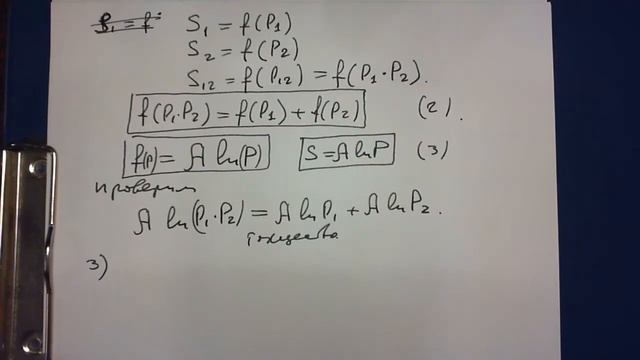 S₁ = f(P₁)
S₂ = f(P₂)
S₁₂ = f(P₁₂) = f(P₁·P₂).
f(P₁·P₂) = f(P₁) + f(P₂) (2).
f(P) = A ln(P) S = A ln P (3)
проверим
A ln(P₁·P₂) = A ln P₁ + A ln P₂.
тождество
3)